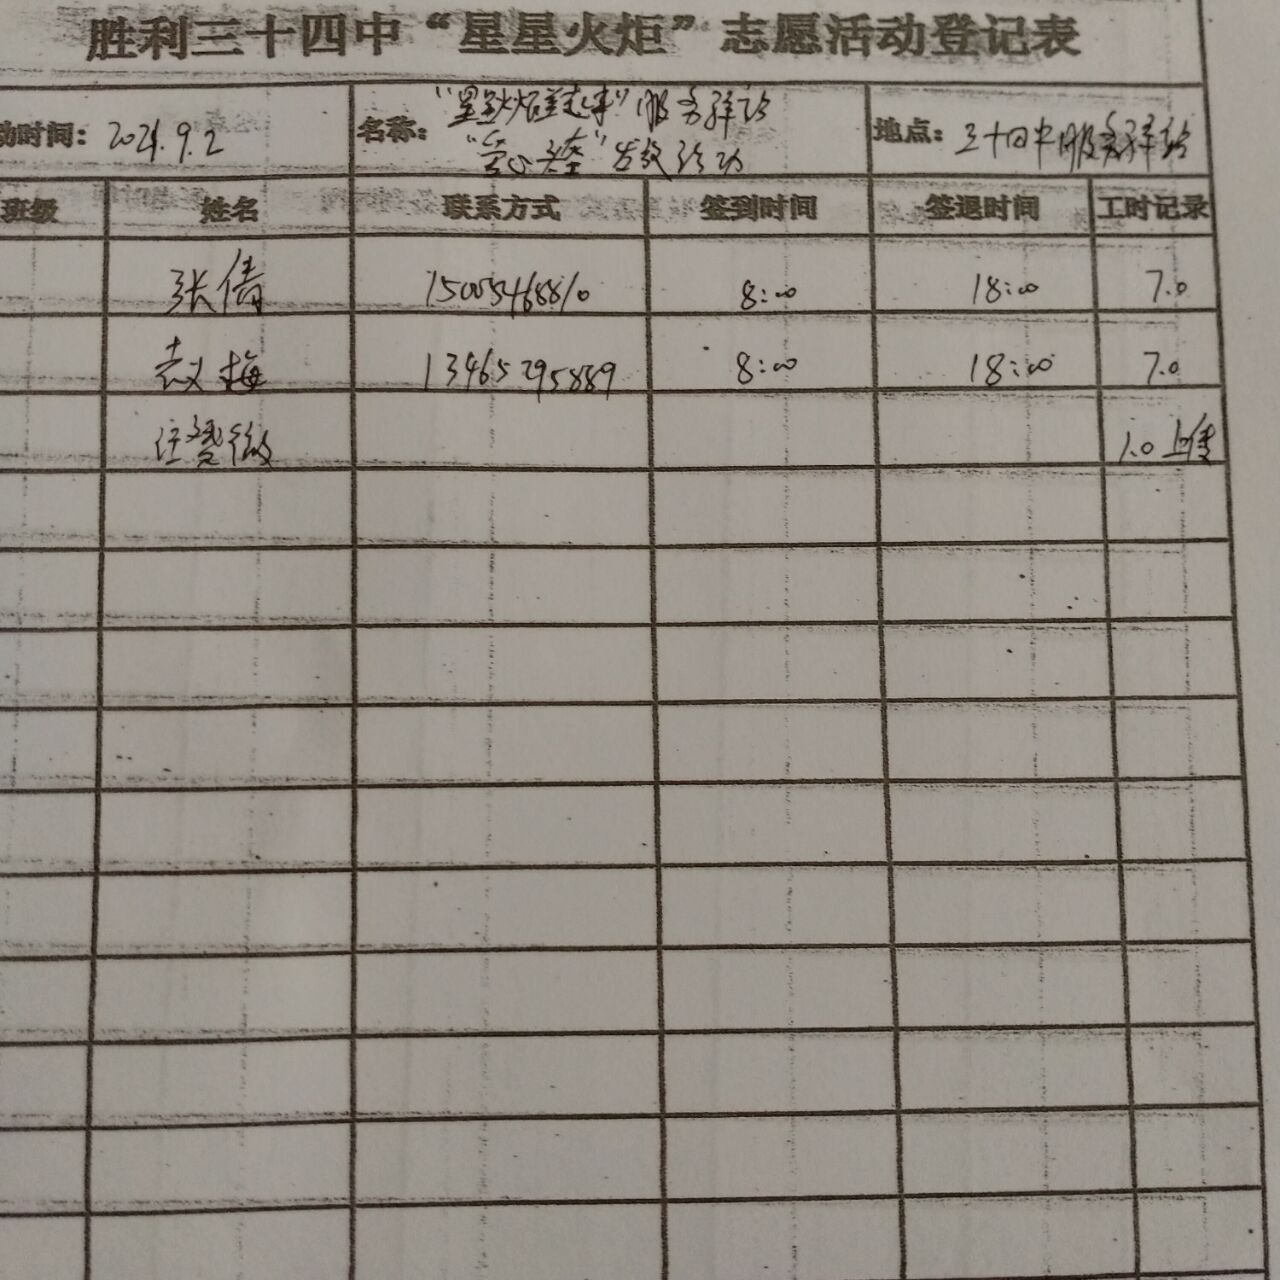 胜利三十四中“星星火炬”志愿活动登记表
动时间: 2021.9.2
名称: “星星火炬 服务驿站
“ ” 发放活动
地点: 三十四中服务驿站
班级 姓名 联系方式 签到时间 签退时间 工时记录
张倩 15005468810 8:00 18:00 7.0
梅 13465295889 8:00 18:00 7.0
1.0 上传